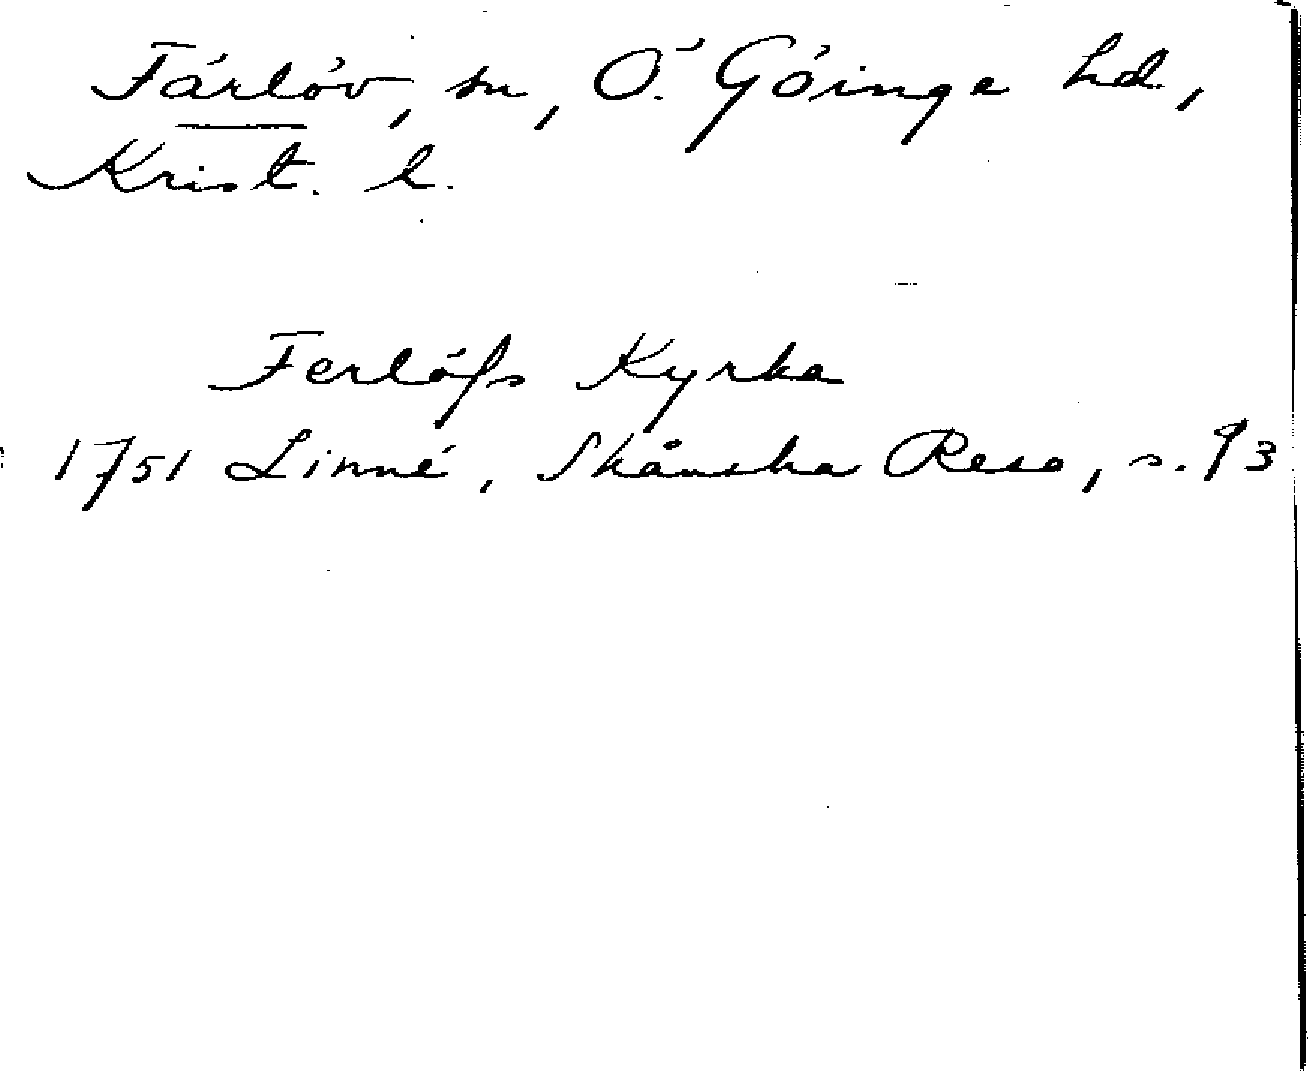 Färlöv, sn, Ö. Göinge hd,
Krist. l.
Ferlöfs Kyrka
1751 Linné, Skånska Resa, s. 93